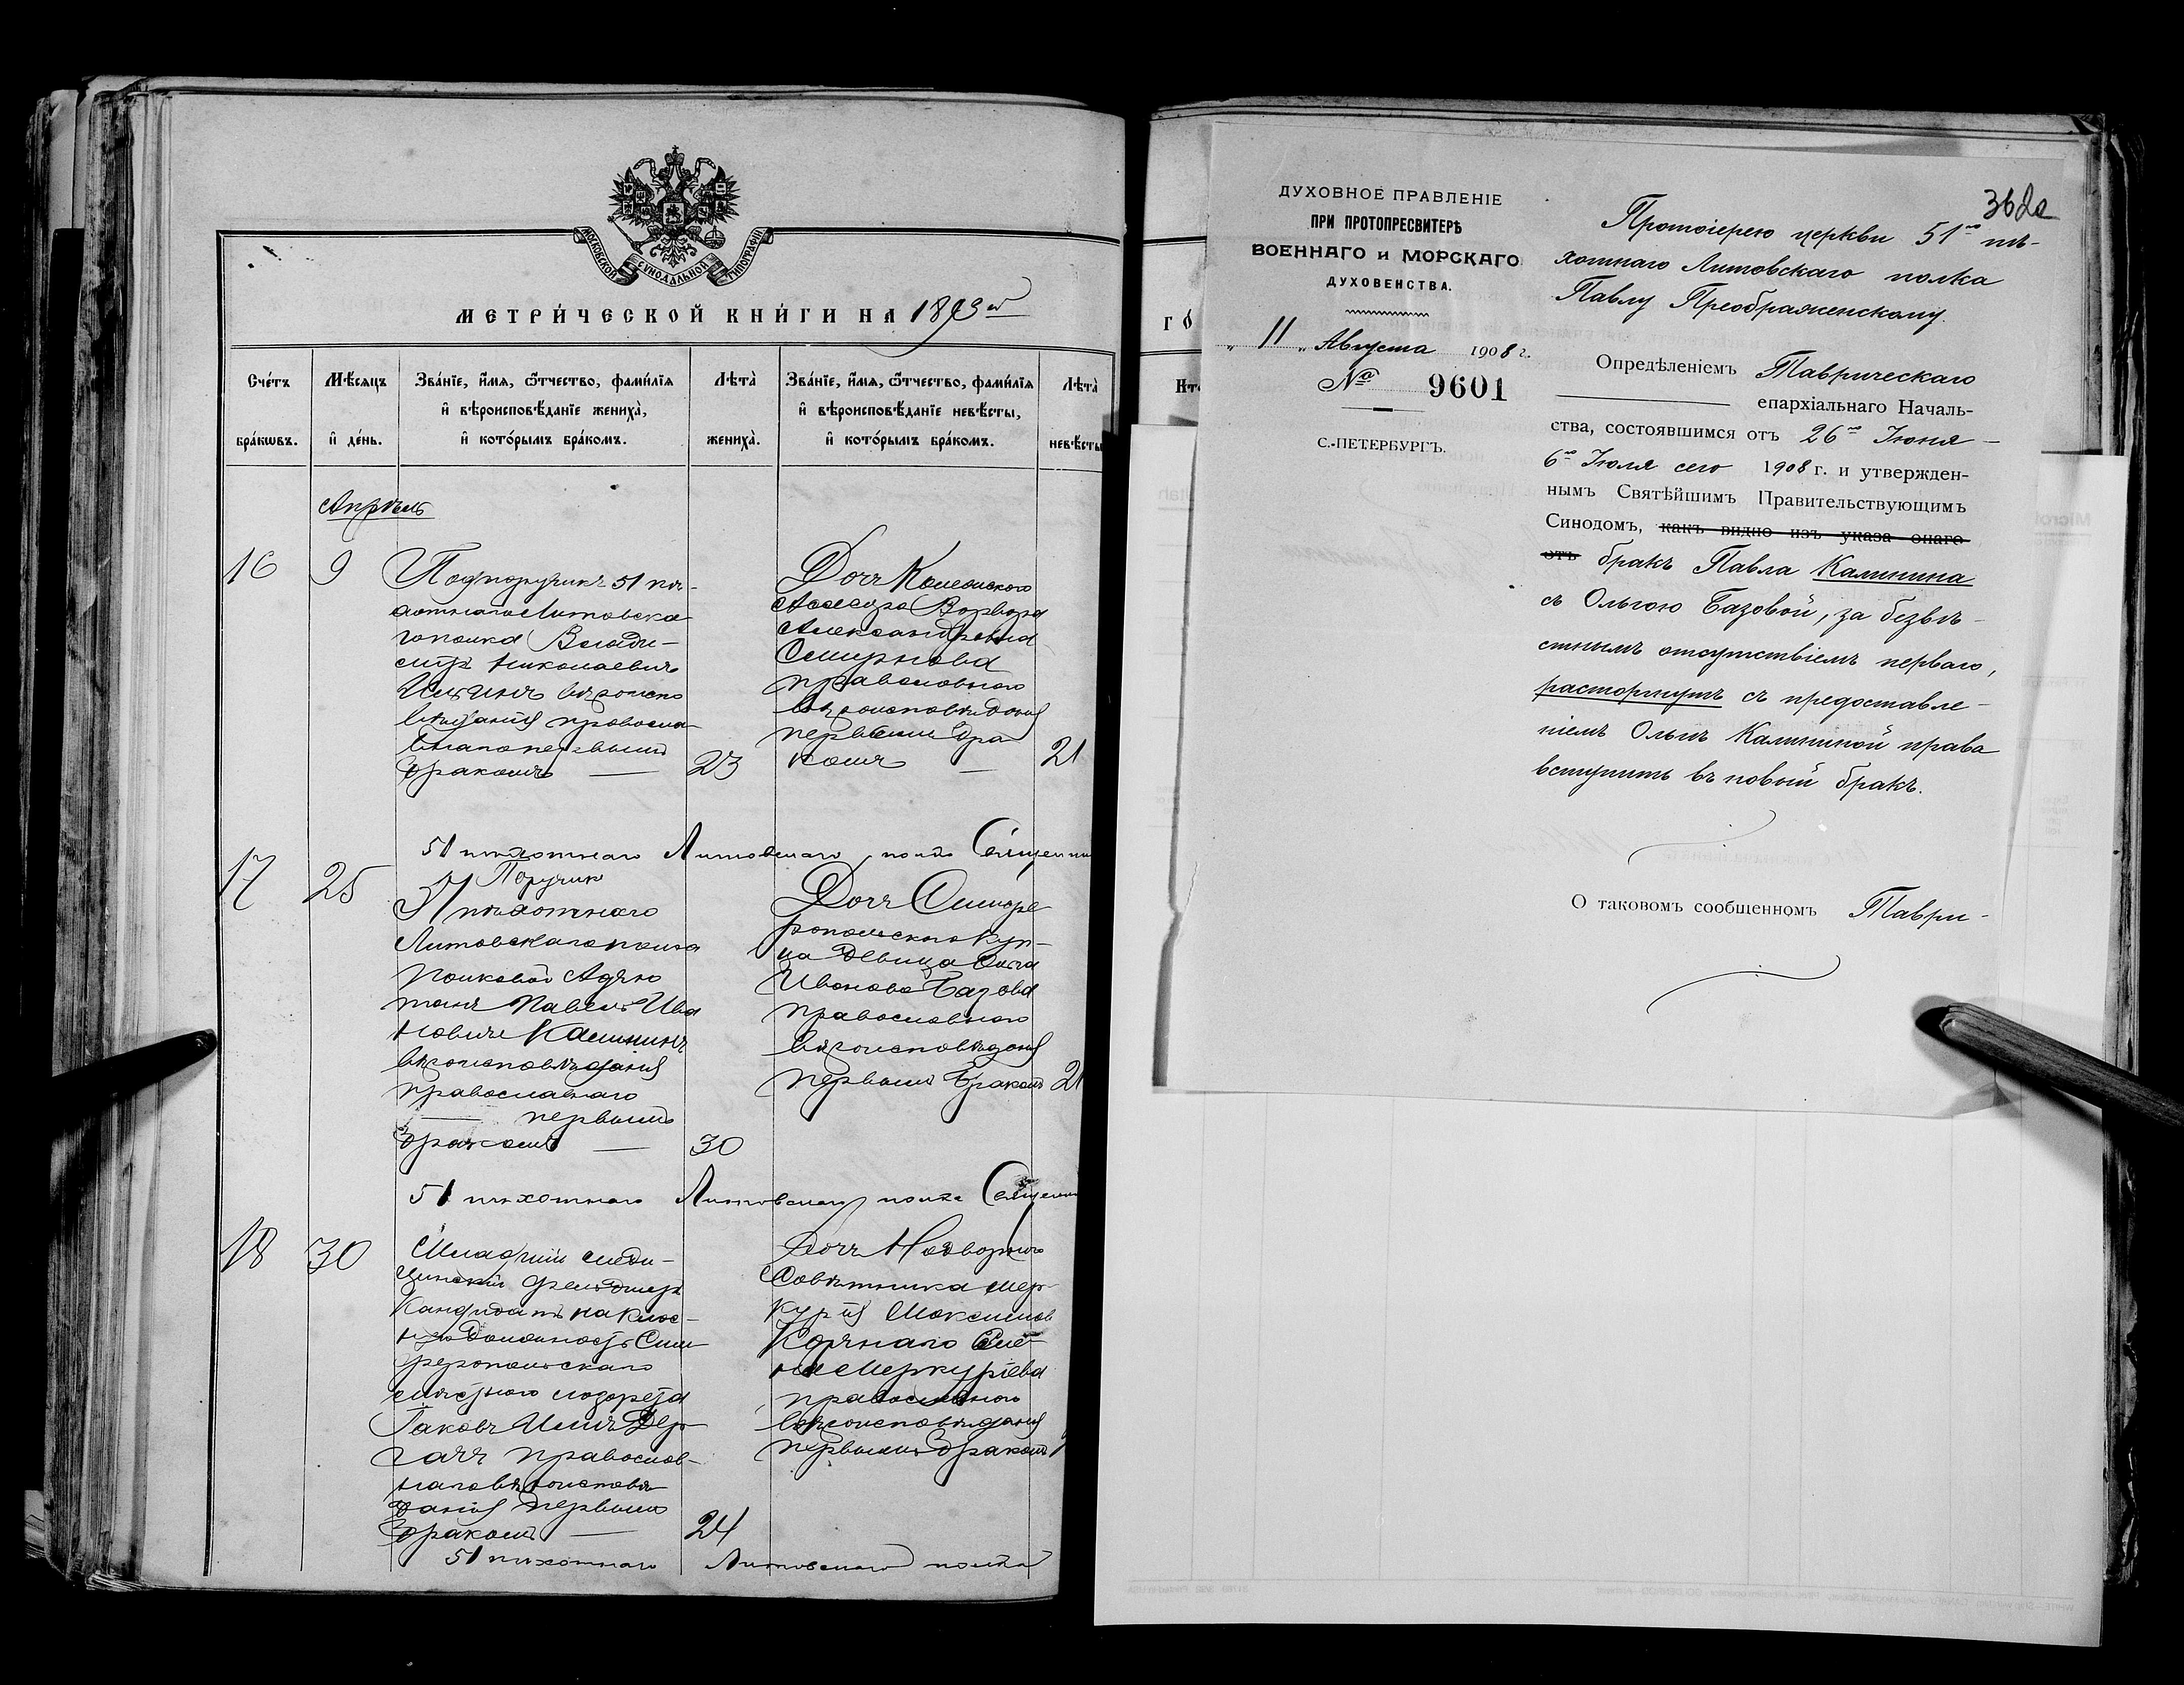 МОСКОВСКОЙ СѴНОДАЛЬНОЙ ТИПОГРАФІИ
МЕТРИ́ЧЕСКОЙ КНИ́ГИ НА 1893 й
Сче́тъ бра́кѡвъ.
Мѣ́сяцъ и҆ де́нь.
Зва́нїе, и҆́мѧ, ѻ҆́тчество, фами́лїѧ
и҆ вѣроисповѣ́данїе жениха̀,
и҆ кото́рымъ бра́комъ.
Лѣта̀ жениха̀.
Зва́нїе, и҆́мѧ, ѻ҆́тчество, фами́лїѧ
и҆ вѣроисповѣ́данїе невѣ́сты,
и҆ кото́рымъ бра́комъ.
Лѣта̀ невѣ́сты
Апрѣль
16
9
Подпоручикъ 51 пѣ-
хотнаго Литовска
го полка Влади-
міръ Николаевичъ
Ильинъ вѣроиспо
вѣданія правосла-
внаго первымъ
бракомъ — 23
Дочь Колежскаго
Асесора Варвара
Александровна
Смирнова
православнаго
вѣроисповѣданія
первымъ бра
комъ — 21
51 пѣхотнаго Литовскаго полка Священни
17
25
Поручик
51 пѣхотнаго
Литовскаго полка
Полковой Адъю
тантъ Павелъ Ива
новичъ Калининъ
вѣроисповѣданія
православнаго
— первымъ
бракомъ — 30
Дочь Симфе
ропольскаго Куп-
ца Девица Ольга
Иванова Базова
православнаго
вѣроисповѣданія
первымъ бракомъ 21
51 пѣхотнаго Литовскаго полка Священни
18
30
Младшій меди-
цинскій фельдшеръ
Кандидатъ на Клас-
ную Должность Сим
феропольскаго
мѣстнаго лазарета
Іаковъ Дер-
гачъ православ-
наго вѣроисповѣ
данія первымъ
бракомъ — 24
Дочь Надворнаго
Совѣтника Мер-
курія Максимов
Корчнаго Еле-
на Меркуріева
православнаго
вѣроисповѣданія
первымъ бракомъ 1
51 пѣхотнаго Литовскаго полка
ГО́
Кто
ДУХОВНОЕ ПРАВЛЕНІЕ
ПРИ ПРОТОПРЕСВИТЕРѢ
ВОЕННАГО и МОРСКАГО
ДУХОВЕНСТВА.
„ 11 „ Августа 1908 г.
№ 9601
С.-ПЕТЕРБУРГЪ.
Протоіерею церкви 51го пѣ-
хотнаго Литовскаго полка
Павлу Преображенскому.
Опредѣленіемъ Таврическаго
епархіальнаго Началь-
ства, состоявшимся отъ 26го Іюня —
6го Іюля сего 1908 г. и утвержден-
нымъ Святѣйшимъ Правительствующимъ
Синодомъ, какъ видно изъ указа онаго
отъ бракъ Павла Калинина
съ Ольгою Базовой, за безвѣ-
стнымъ отсутствіемъ перваго,
расторгнутъ съ предоставле-
ніемъ Ольгѣ Калининой права
вступить въ новый бракъ.
О таковомъ сообщенномъ Таври-